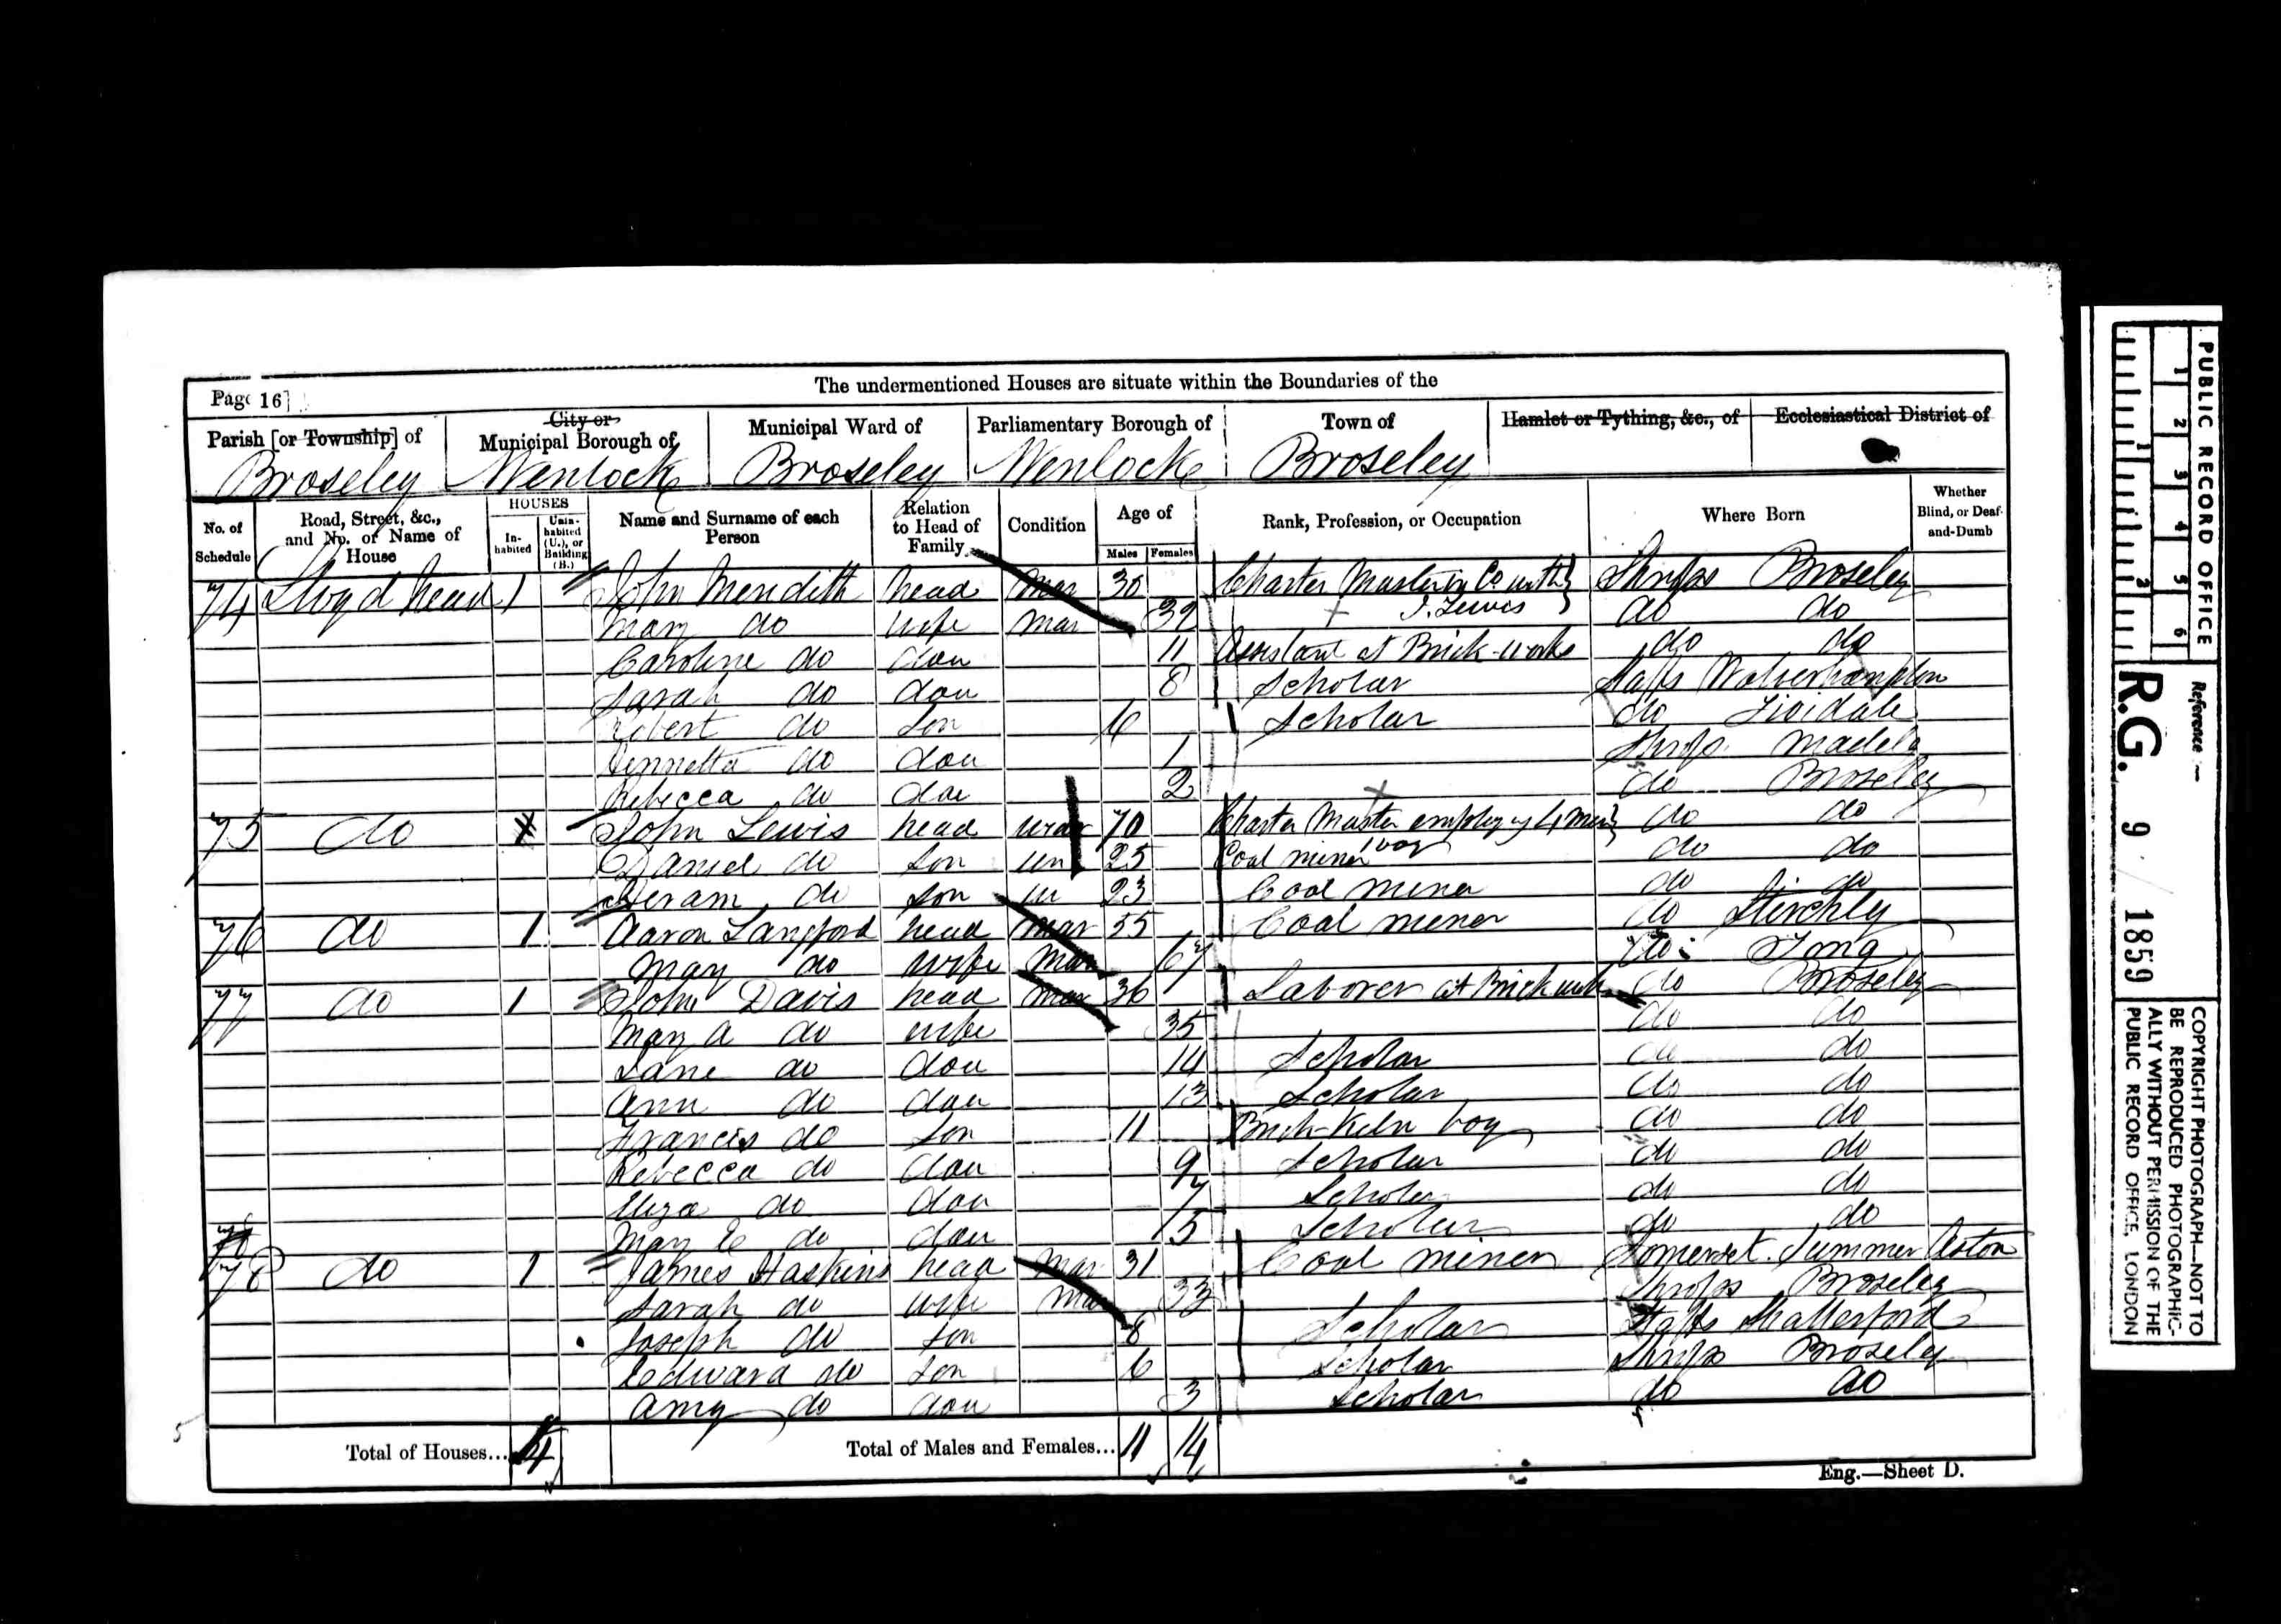 The undermentioned Houses are situate within the Boundaries of the
Page 16]
Parish [or Township] of
City or
Municipal Borough of
Municipal Ward of
Parliamentary Borough of
Town of
Hamlet or Tything, &c., of
Ecclesiastical District of
Broseley Wenlock Broseley Wenlock Broseley
No. of Schedule
Road, Street, &c., and No. or Name of House
HOUSES
In-habited
Unin-habited (U.), or Building (B.)
Name and Surname of each Person
Relation to Head of Family
Condition
Age of
Males Females
Rank, Profession, or Occupation
Where Born
Whether Blind, or Deaf-and-Dumb
74 Lloyd head 1 John Meredith head mar 30 Charter Master in Co with Shrops Broseley
Mary do wife mar 32 J. Lewis do do
Caroline do dau 11 Assistant at Brick-works do do
Sarah do dau 8 Scholar Staffs Wolverhampton
Robert do son 6 Scholar do Tividale
do dau 1 Shrops Madeley
Rebecca do dau 2 do Broseley
75 do John Lewis head 70 Charter Master employing 4 men do do
boy
Daniel do son un 25 Coal miner do do
do son un 23 Coal miner do do
76 do 1 Aaron Langford head mar 55 Coal miner do Stirchly
Mary do wife mar 67 do Tong
77 do 1 John Davis head mar 36 Laborer at Brick work do Broseley
Mary A do wife 35 do do
Jane do dau 14 Scholar do do
Ann do dau 13 Scholar do do
Francis do son 11 Brick-Kiln boy do do
Rebecca do dau 9 Scholar do do
Eliza do dau 7 Scholar do do
Mary E do dau 5 Scholar do do
78 do 1 James Haskins head mar 31 Coal miner Somerset. Summer Aston
Sarah do wife mar 33 Shrops Broseley
Joseph do son 8 Scholar Staffs Shatterford
Edward do son 6 Scholar Shrops Broseley
Amy do dau 3 Scholar do do
Total of Houses... 4
Total of Males and Females... 11 14
Eng.—Sheet D.
PUBLIC RECORD OFFICE
1 2 3 4 5 6
1 2
Reference:—
R.G. 9 / 1859
COPYRIGHT PHOTOGRAPH—NOT TO
BE REPRODUCED PHOTOGRAPHIC-
ALLY WITHOUT PERMISSION OF THE
PUBLIC RECORD OFFICE, LONDON